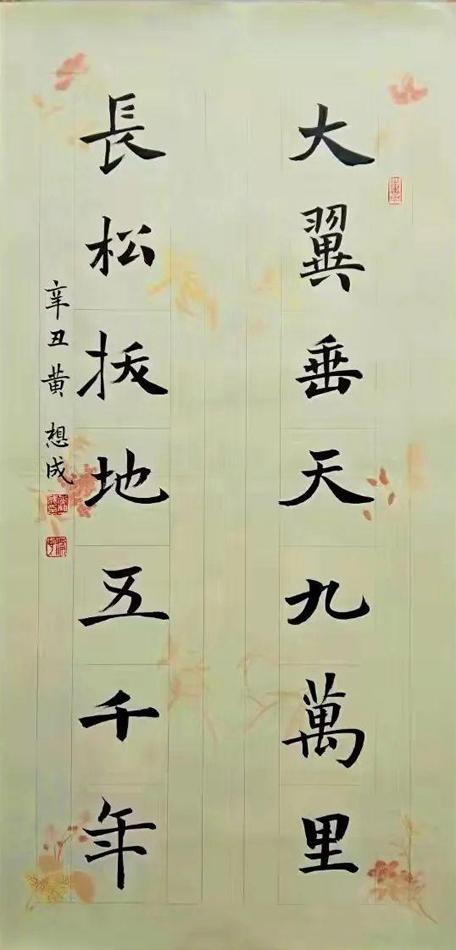 大翼垂天九萬里
長松拔地五千年
辛丑黄想成